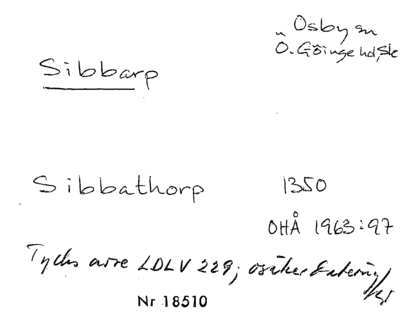 Osby sn
Sibbarp
Ö. Göinge hd, Sk
Sibbathorp 1350
OHÅ 1963:97
Tycks avse LDLV 229; osäker datering
Nr 18510